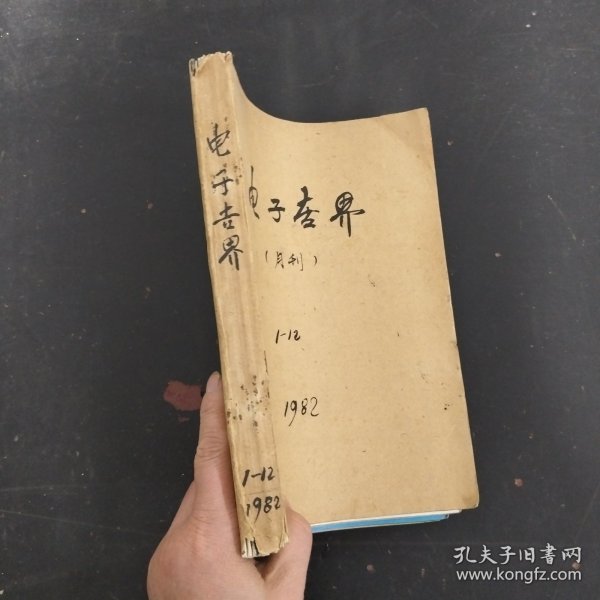 电子世界
1-12
1982
电子世界
(月刊)
1-12
1982
孔夫子旧书网
www.kongfz.com